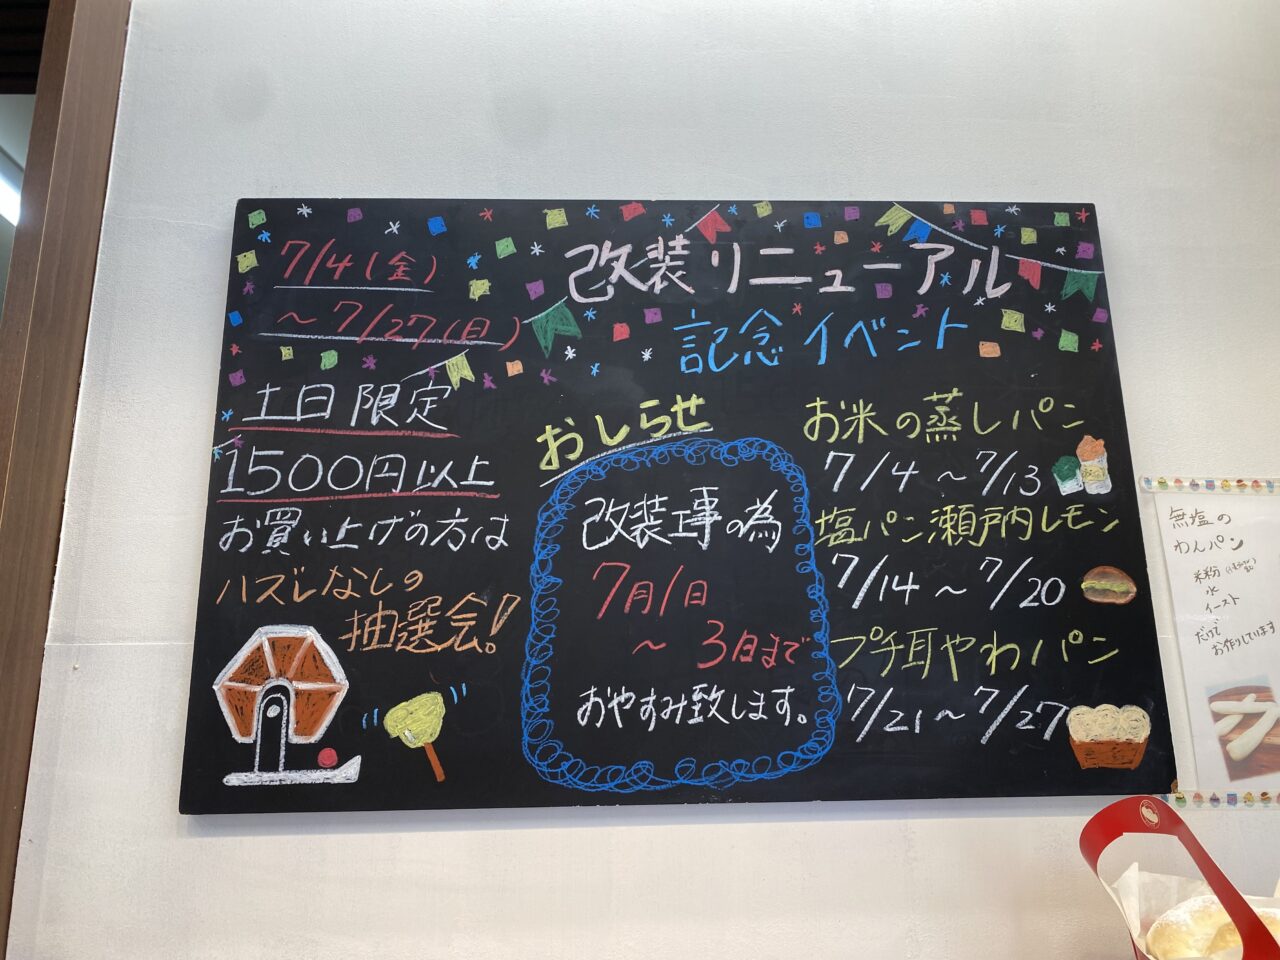 7/4(金)
~7/27(日)
改装リニューアル
記念イベント
土日限定
1500円以上
お買い上げの方は
ハズレなしの
抽選会!
おしらせ
改装工事の為
7月1日
~3日まで
おやすみ致します。
お米の蒸しパン
7/4~7/13
塩パン瀬戸内レモン
7/14~7/20
プチ耳やわパン
7/21~7/27
無塩の
わんパン
米粉
水
イースト
だけで
お作りしています